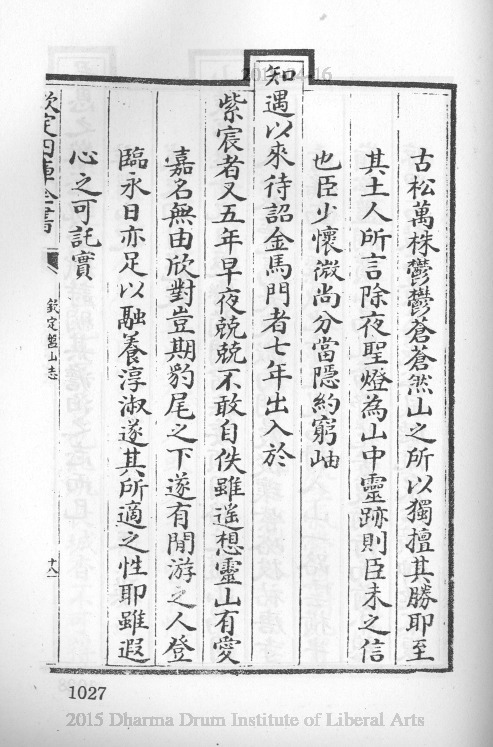 古松萬株鬱鬱蒼蒼然山之所以獨擅其勝耶至
其土人所言除夜聖燈為山中靈跡則臣未之信
也臣少懷微尚分當隱約窮岫
知遇以來待詔金馬門者七年出入於
紫宸者又五年早夜兢兢不敢自佚雖遥想靈山有愛
嘉名無由欣對豈期豹尾之下遂有閒游之人登
臨永日亦足以融養淳淑遂其所適之性耶雖遐
心之可託實
欽定四庫全書
欽定盤山志
1027
2015 Dharma Drum Institute of Liberal Arts